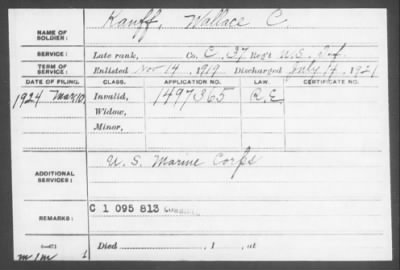 NAME OF SOLDIER: Kanff, Wallace C
SERVICE: Late rank, Co. C, 37 Reg't U.S. Inf.
TERM OF SERVICE: Enlisted Nov 14, 1919 Discharged July 14, 1921
DATE OF FILING. CLASS. APPLICATION NO. LAW. CERTIFICATE NO.
1924 Mar, 10, Invalid, 1497365 R.E.
Widow,
Minor,
ADDITIONAL SERVICES: U.S. Marine Corps
REMARKS: C 1 095 813
Died , 1 , at